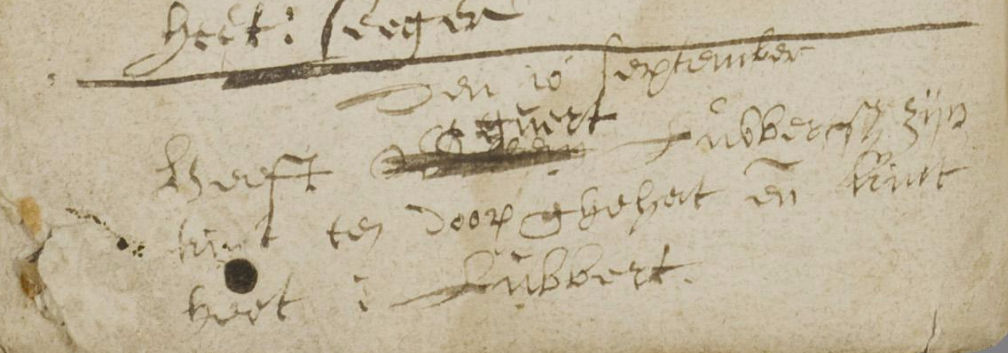 heet: seeger
Den 10 september
Heeft Eguert Lubbertsz zijn
kint ten doop gehadt en̄ kint
heet : Lubbert.